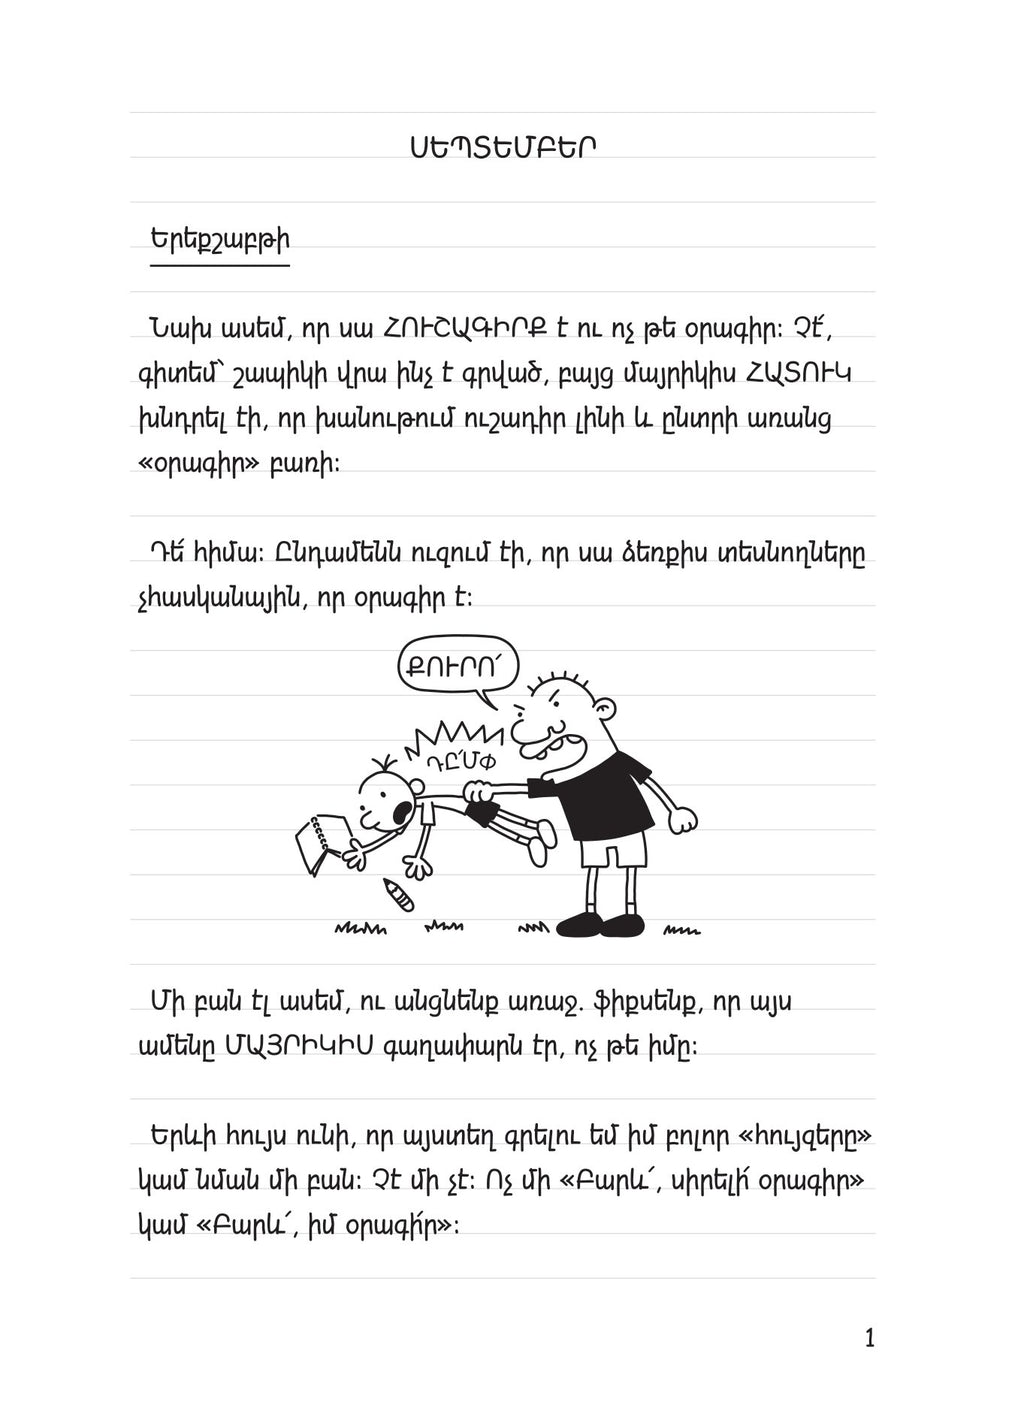 ՍԵՊՏԵՄԲԵՐ
Երեքշաբթի
Նախ ասեմ, որ սա ՀՈՒՇԱԳԻՐՔ է ու ոչ թե օրագիր։ Չէ՜,
գիտեմ՝ շապիկի վրա ինչ է գրված, բայց մայրիկիս ՀԱՏՈՒԿ
խնդրել էի, որ խանութում ուշադիր լինի և ընտրի առանց
«օրագիր» բառի։
Դե՜ հիմա։ Ընդամենն ուզում էի, որ սա ձեռքիս տեսնողները
չհասկանային, որ օրագիր է։
ՔՈՒՐՈ՜
ԴԸ՜ՄՓ
Մի բան էլ ասեմ, ու անցնենք առաջ. ֆիքսենք, որ այս
ամենը ՄԱՅՐԻԿԻՍ գաղափարն էր, ոչ թե իմը։
Երևի հույս ունի, որ այստեղ գրելու եմ իմ բոլոր «հույզերը»
կամ նման մի բան։ Չէ մի չէ։ Ոչ մի «Բարև՜, սիրելի՜ օրագիր»
կամ «Բարև՜, իմ օրագի՜ր»։
1